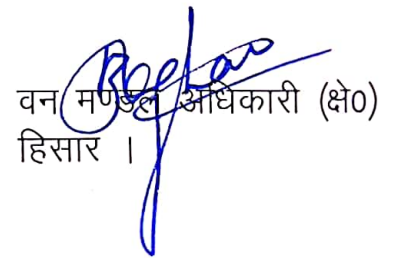 वन मण्डल अधिकारी (क्षे0)
हिसार ।